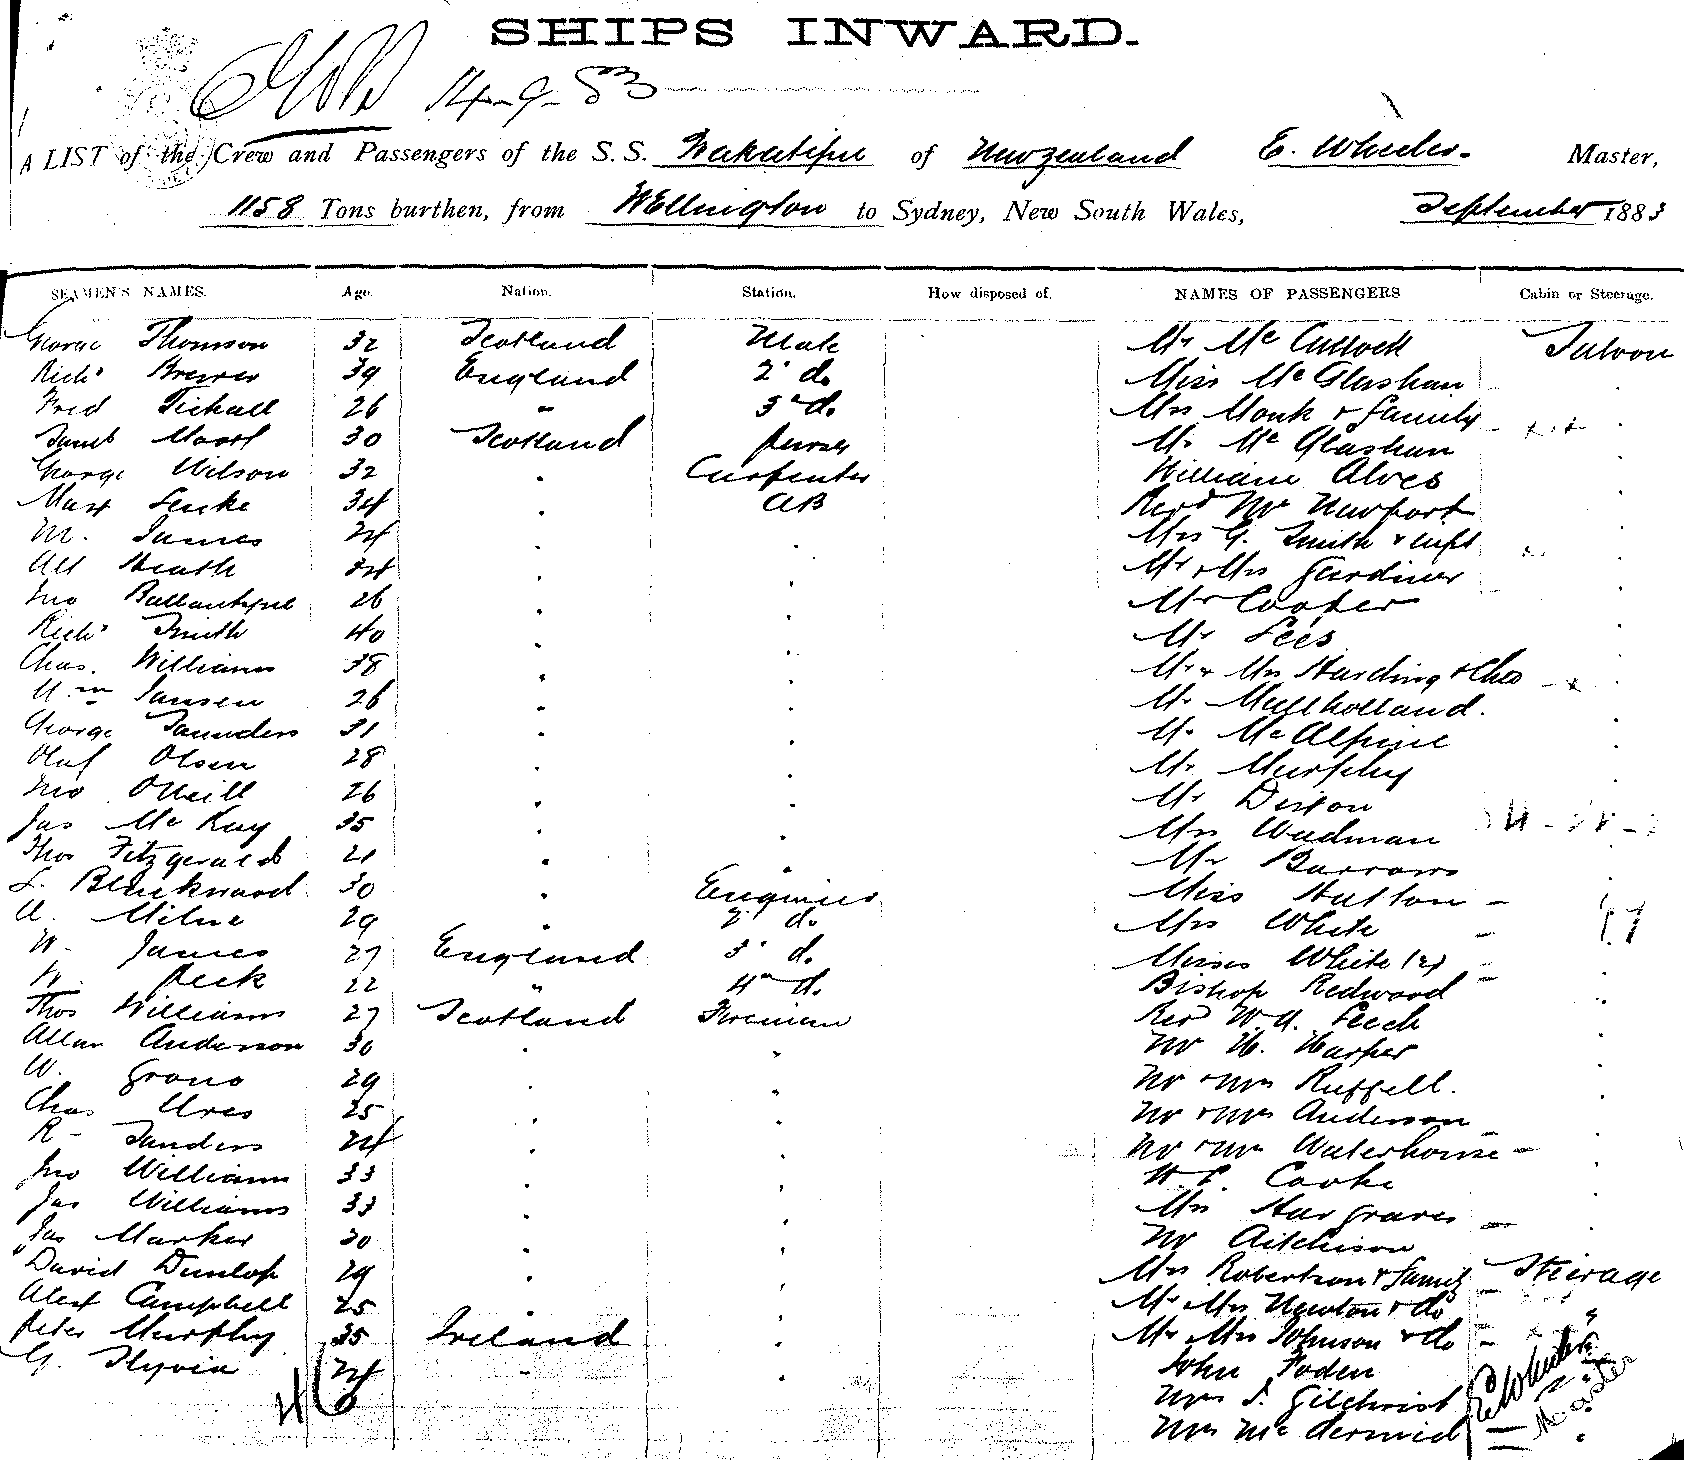 SHIPS INWARD.
14-9-83
A LIST of the Crew and Passengers of the S.S. Wakatipu of New Zealand E. Wheeler. Master,
1158 Tons burthen, from Wellington to Sydney, New South Wales, September 1883
SEAMEN'S NAMES. Age. Nation. Station. How disposed of. NAMES OF PASSENGERS Cabin or Steerage.
George Thomson 32 Scotland Mate Mr Mc Cullock Saloon
Richd Brewer 39 England 2d do Miss Mc Glashan
Fred Tickall 26 " 3d do Mrs Monk & Family
30 Scotland Purser Mr Mc Glashan
George Wilson 32 Carpenter William Alves
34 AB Revd Mr Newport
M. James 24 Mrs G. Smith & inft
Alf Heath 34 Mr & Mrs Gardiner
Jno Ballantyne 26 Mr Cooper
Richd Smith 40 Mr Lees
Chas. Williams 38 Mr & Mrs Harding & Chd
Wm Jansen 26 Mr Mullholland.
George Saunders 31 Mr McAlpine
Oluf Olsen 28 Mr Murphy
Jno O'Neill 26 Mr Dixon
Jas Mc Kay 35 Mrs Wadman
Thos Fitzgerald 21 Mr Barrows
L. Blackwood 30 Engineer Miss Hutton
A. Milne 29 2d do Mrs White
W. James 27 England 3d do Misses White (2)
W. Peck 22 " 4th do Bishop Redwood
Thos Williams 27 Scotland Fireman Rev W.A. Leech
Allan Anderson 30 Mr H. Harper
W. Grono 29 Mr & Mrs Ruffell.
Chas Ures 25 Mr & Mrs Anderson
R Sanders 24 Mr & Mrs Waterhouse
Jno Williams 33 Cooke
Jas Williams 33 Mrs Hargraves
Jas Marker 30 Mr Aitchison
David Dunlop 29 Mrs Robertson & Family Steerage
Alex Campbell 25 Mr Mrs Newton & do "
Peter Murphy 35 Ireland Mr Mrs Johnson & do "
G. 24 John Foden
46 Mrs J. Gilchrist
Mrs Mc Dermid
E Wheeler
Master